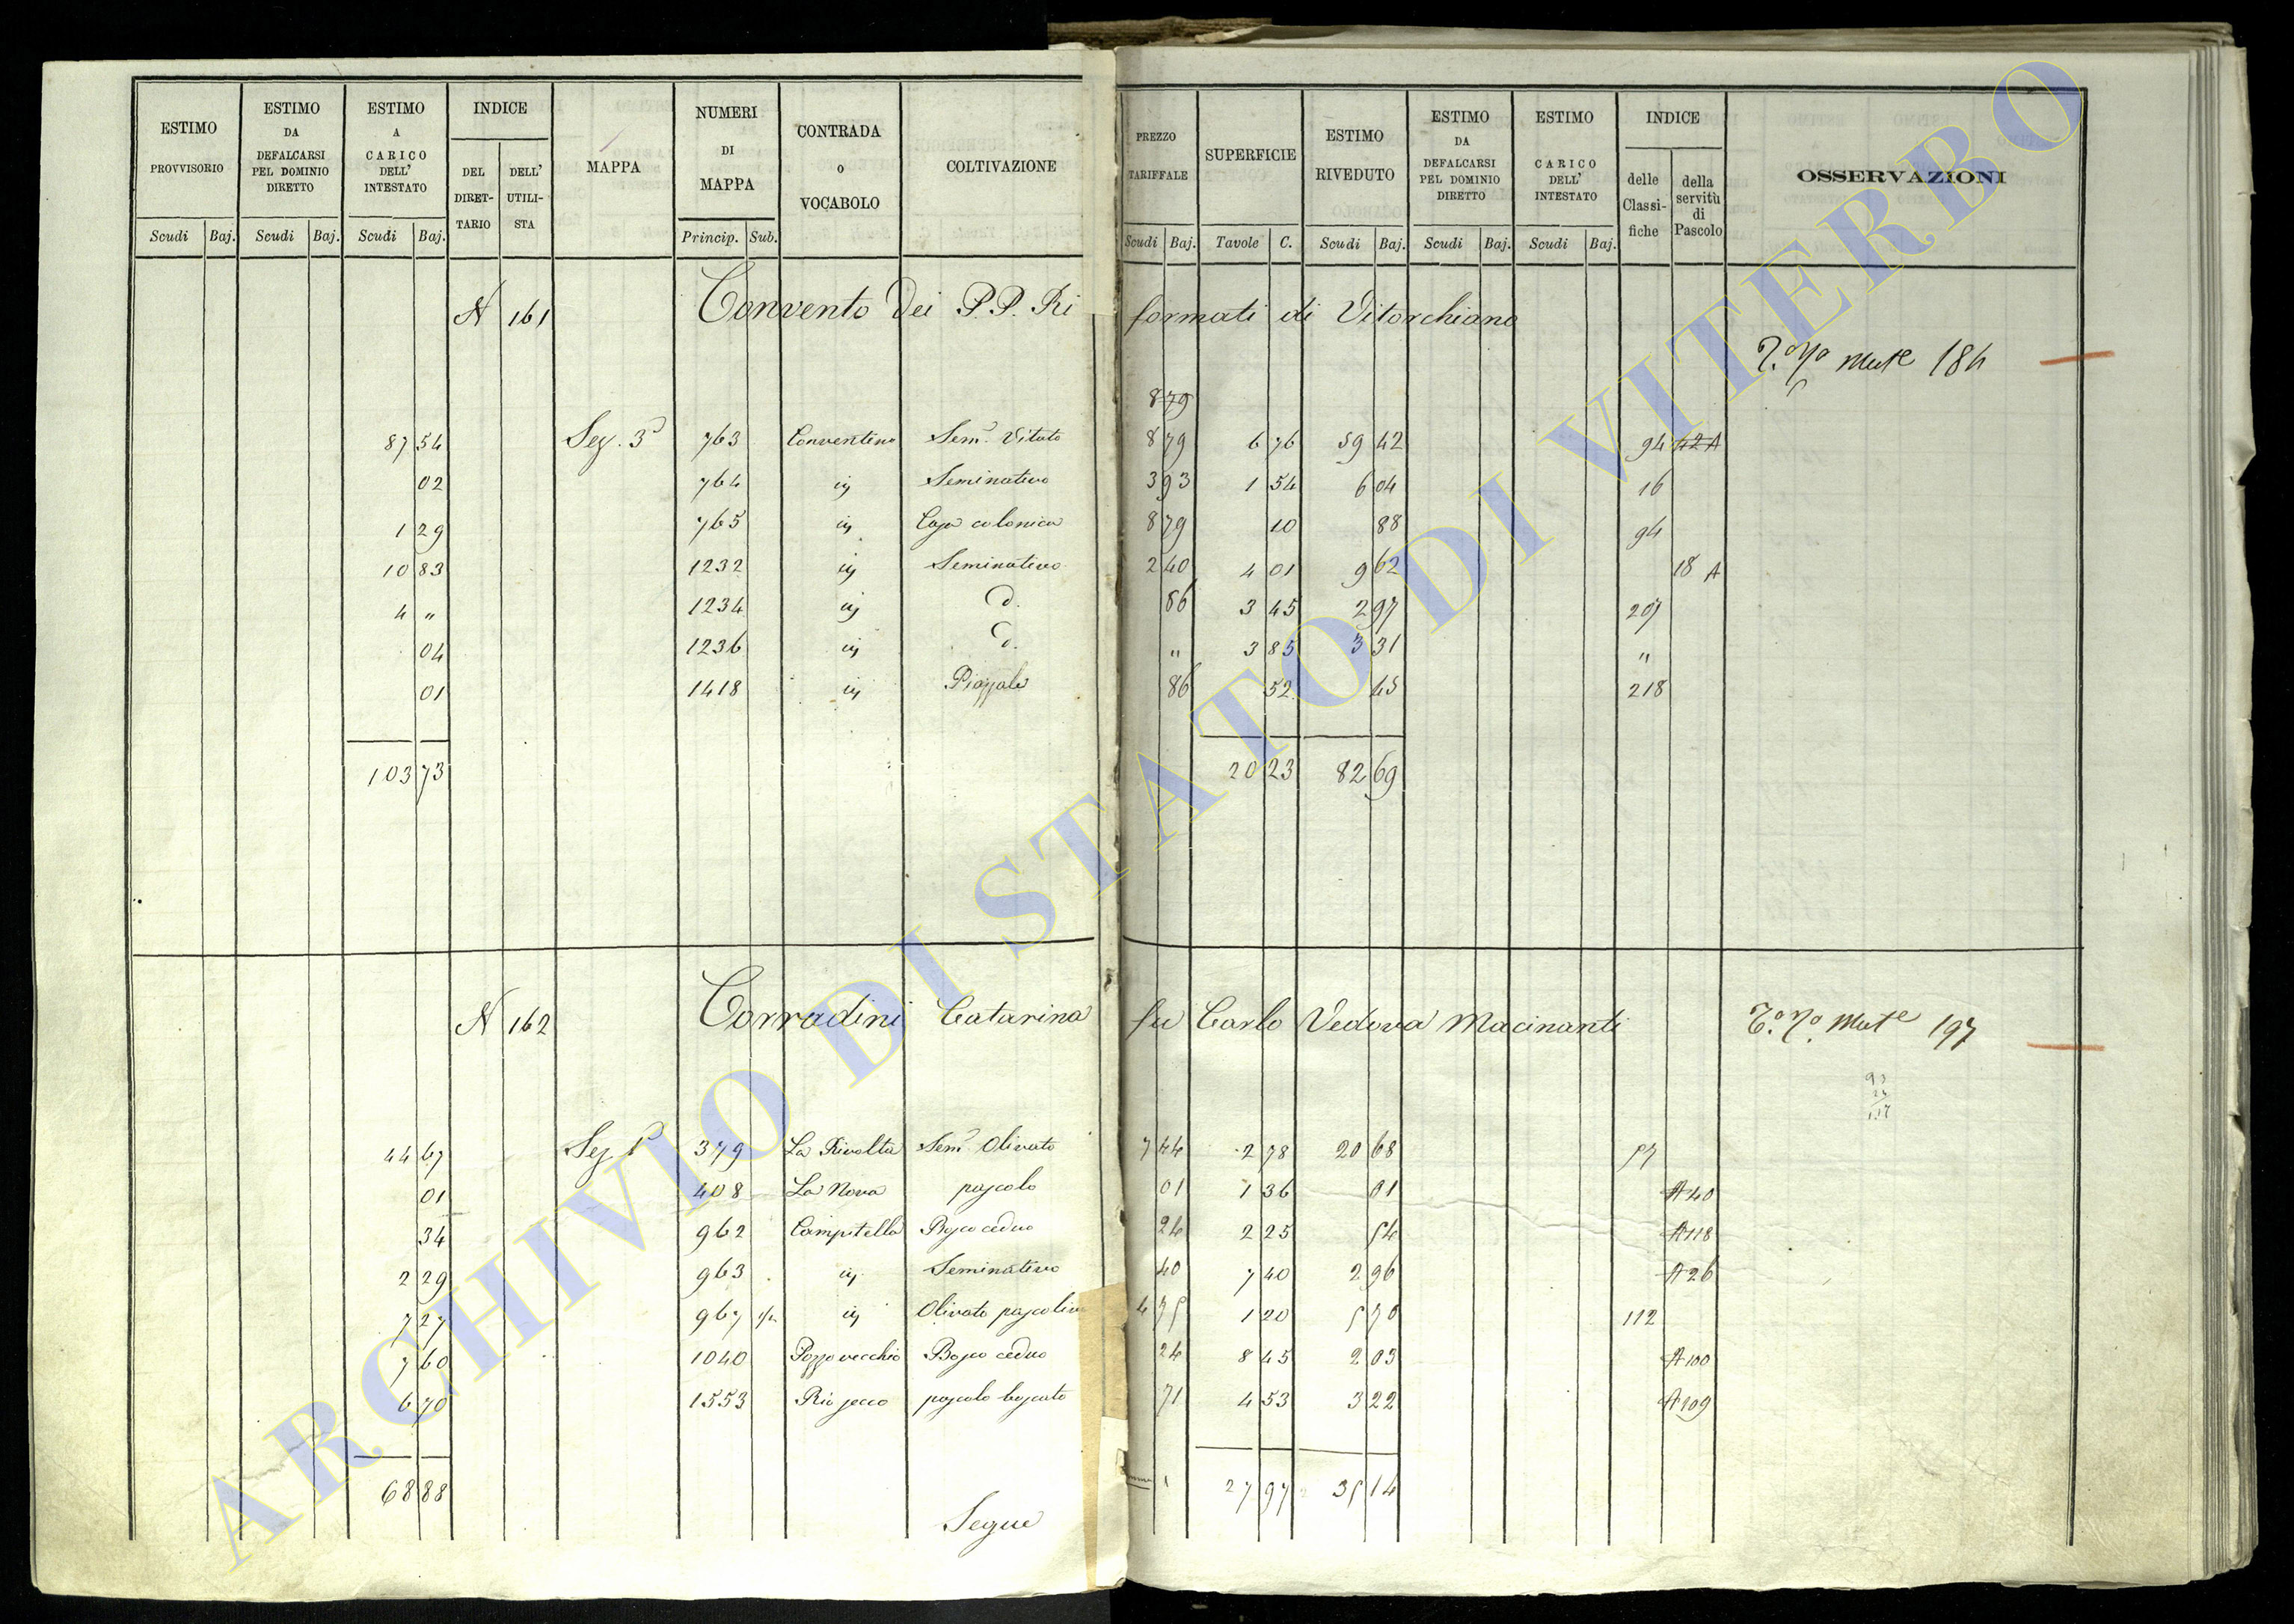 ESTIMO PROVVISORIO Scudi Baj.
ESTIMO DA DEFALCARSI PEL DOMINIO DIRETTO Scudi Baj.
ESTIMO A CARICO DELL' INTESTATO Scudi Baj.
INDICE DEL DIRET-TARIO DELL' UTILI-STA
MAPPA
NUMERI DI MAPPA Princip. Sub.
CONTRADA o VOCABOLO
COLTIVAZIONE
PREZZO TARIFFALE Scudi Baj.
SUPERFICIE Tavole C.
ESTIMO RIVEDUTO Scudi Baj.
ESTIMO DA DEFALCARSI PEL DOMINIO DIRETTO Scudi Baj.
ESTIMO CARICO DELL' INTESTATO Scudi Baj.
INDICE delle Classi-fiche della servitù di Pascolo
OSSERVAZIONI
N 161 Convento dei P.P. Riformati di Vitorchiano
Mut.e 184
8 79
87 54 Sez. 3a 763 Conventino Sem.o Vitato 8 79 6 76 59 42 94 42 A
02 764 iij Seminativo 3 93 1 54 6 04 16
1 29 765 iij Casa colonica 8 79 10 88 94
10 83 1232 iij Seminativo 2 40 4 01 9 62 18 A
4 " 1234 iij d. 86 3 45 2 97 207
04 1236 iij d. " 3 85 3 31 "
01 1418 iij Piazzale 86 52 45 218
103 73 20 23 82 69
N 162 Corradini Catarina fu Carlo Vedova Macinanti
Mut.e 197
44 67 Sez. 1a 379 La Rivolta Sem.o Olivato 7 44 2 78 20 68 57
01 408 La Nova pascolo 01 1 36 01 A 40
34 962 Campitella Bosco ceduo 24 2 25 54 A 118
2 29 963 iij Seminativo 40 7 40 2 96 A 26
7 27 967 iij Olivato pascolivo 4 75 1 20 5 70 112
7 60 1040 Pozzo vecchio Bosco ceduo 24 8 45 2 03 A 100
6 70 1553 Rio secco pascolo boscato 71 4 53 3 22 A 109
68 88 27 97 35 14
Segue
ARCHIVIO DI STATO DI VITERBO